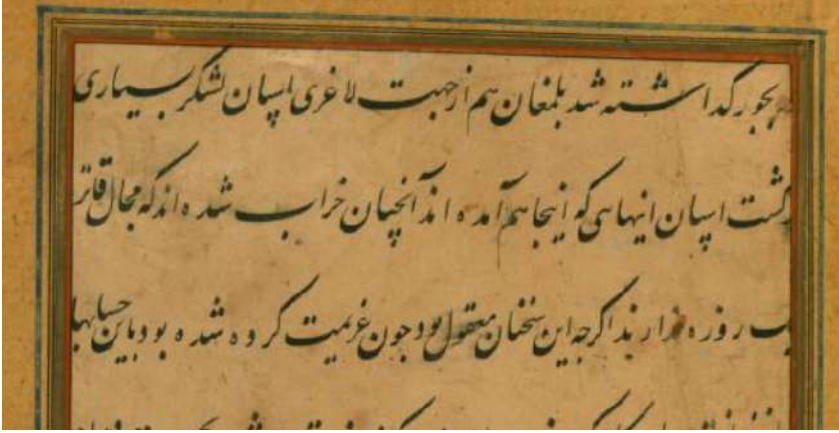 بجور گذاشته شد بلمغان هم از جهت لاغری اسپان لشکر بسیاری
گشت اسپان اینهایی که اینجا هم آمده اند آنچنان خراب شده اند که مجال قاتر
یک روزه ندارند اگرچه این سخنان معقول بود چون عزیمت کرده شده بود باین حسابها